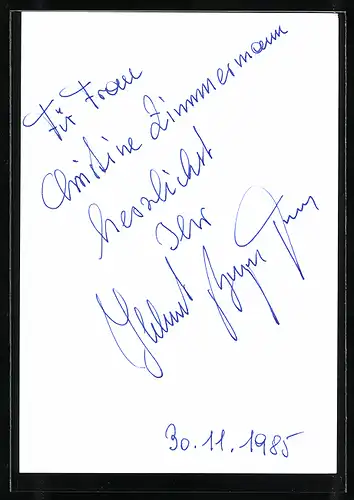 Für Frau
Christine Zimmermann
herzlichst
Ihr
Helmut
30.11.1985